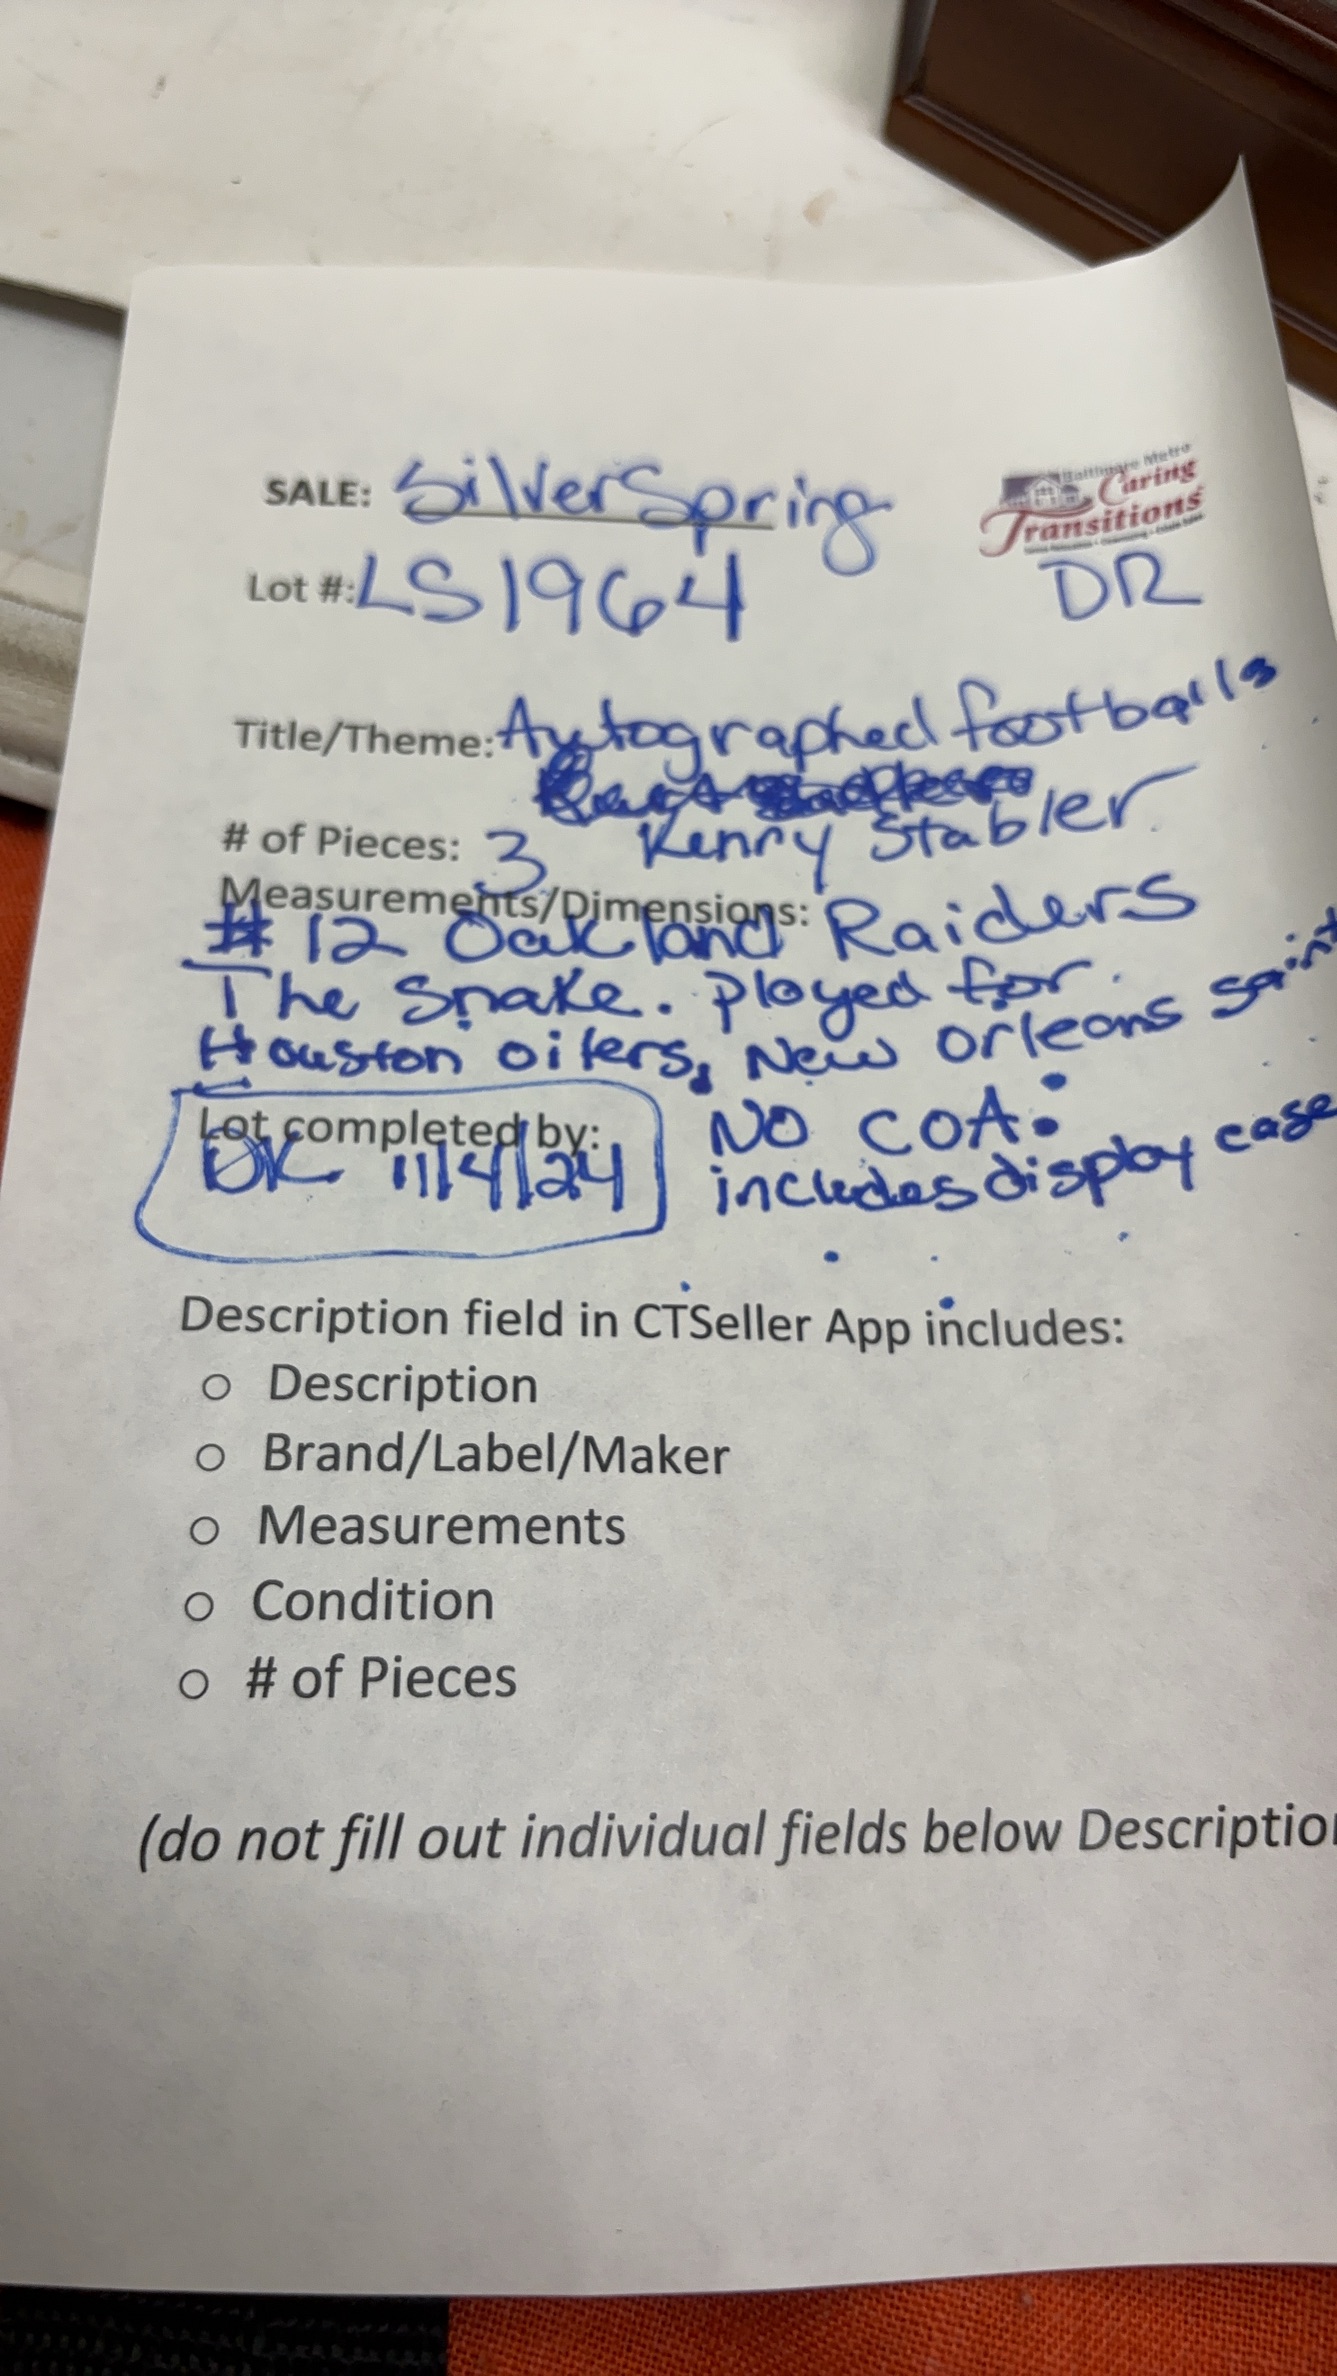 SALE: SilverSpring
Baltimore Metro
Caring
Transitions
Lot #: LS1964
DR
Title/Theme: Autographed footballs
# of Pieces: 3 Kenny Stabler
Measurements/Dimensions:
#12 Oakland Raiders
The Snake. Played for
Houston oilers, New Orleans saint
Lot completed by:
DK 11/4/24
NO COA.
includes display case
Description field in CTSeller App includes:
○ Description
○ Brand/Label/Maker
○ Measurements
○ Condition
○ # of Pieces
(do not fill out individual fields below Description